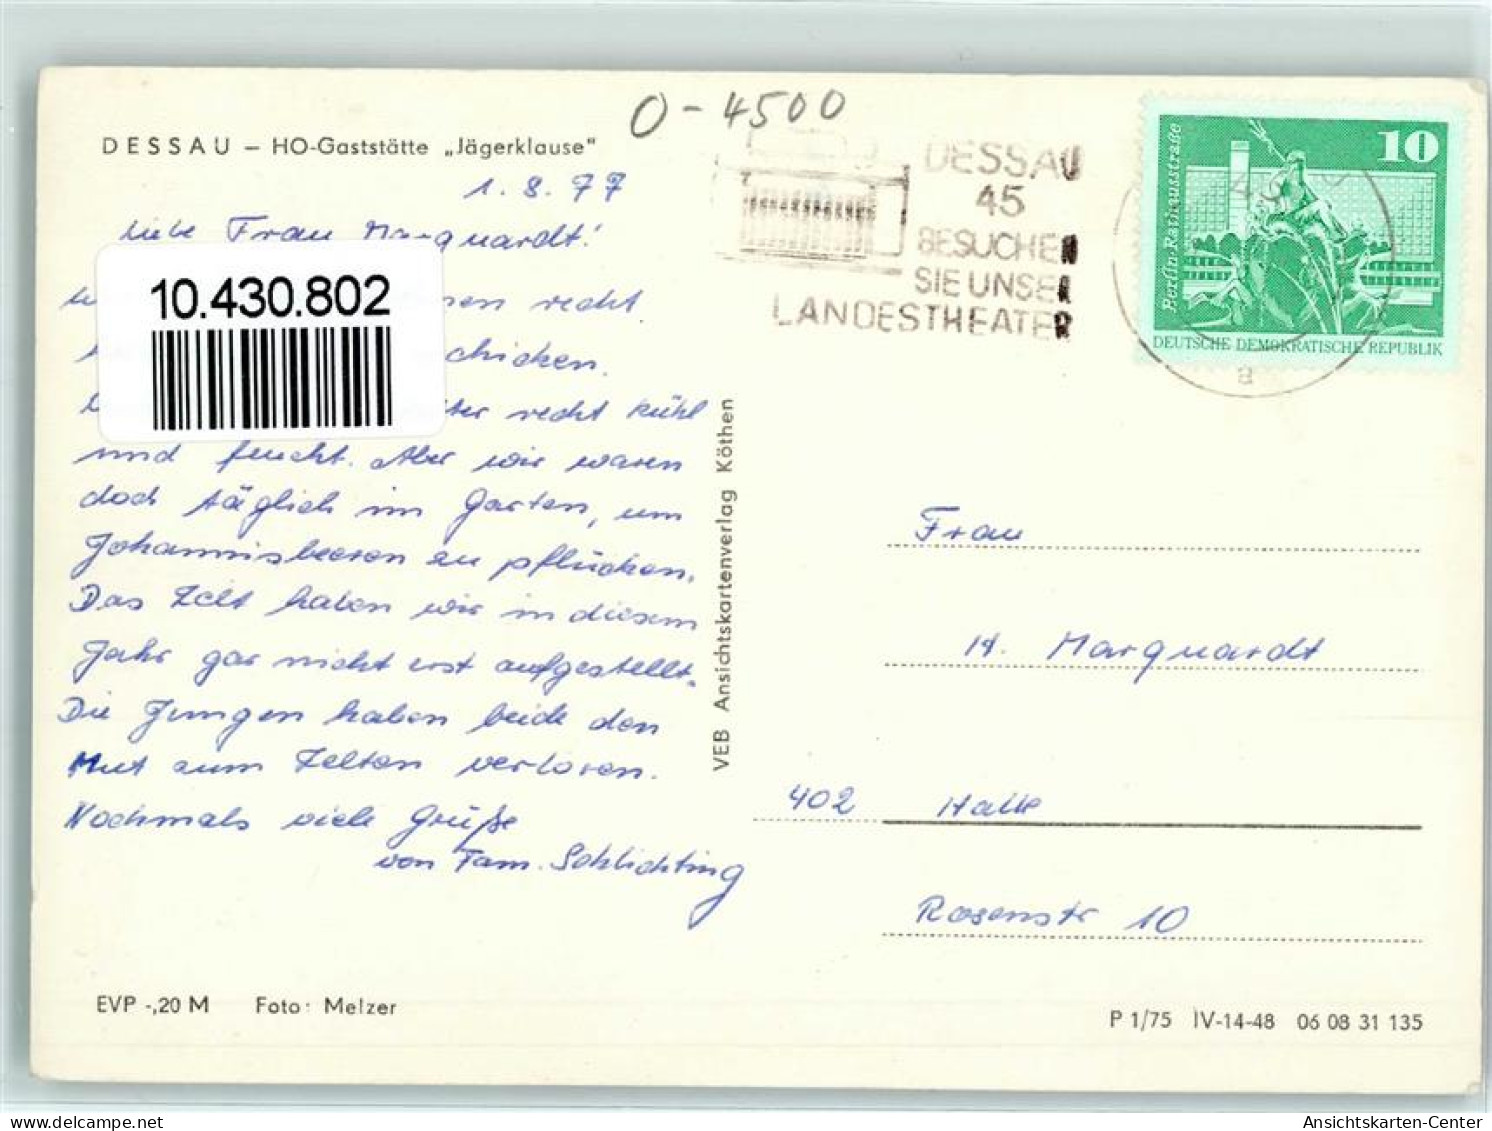 O-4500
DESSAU – HO-Gaststätte „Jägerklause"
1.8.77
Liebe Frau Marquardt!
recht
10.430.802
chicken.
recht kühl
und feucht. Aber wir waren
doch täglich im Garten, um
Johannisbeeren zu pflücken.
Das Zelt haben wir in diesem
Jahr gar nicht erst aufgestellt.
Die Jungen haben beide den
Mut zum Zelten verloren.
Nochmals viele Grüße
von Fam. Schlichting
EVP -,20 M Foto: Melzer
VEB Ansichtskartenverlag Köthen
DESSAU
45
BESUCHEN
SIE UNSER
LANDESTHEATER
10
Berlin-Rathausstraße
DEUTSCHE DEMOKRATISCHE REPUBLIK
a
Frau
H. Marquardt
402 Halle
Rosenstr 10
P 1/75 IV-14-48 06 08 31 135
oldthing.de
Ansichtskarten-Center